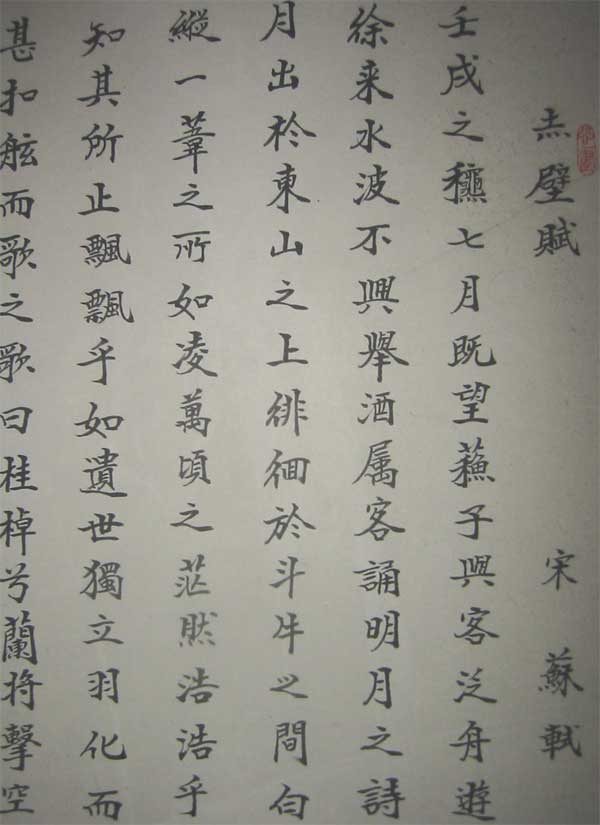 赤壁賦 宋 蘇軾
壬戌之龝七月既望蘓子與客泛舟遊
徐来水波不興舉酒属客誦明月之詩
月出於東山之上徘徊於斗牛之間白
縱一葦之所如凌萬頃之茫然浩浩乎
知其所止飄飄乎如遺世獨立羽化而
甚扣舷而歌之歌曰桂棹兮蘭將擊空